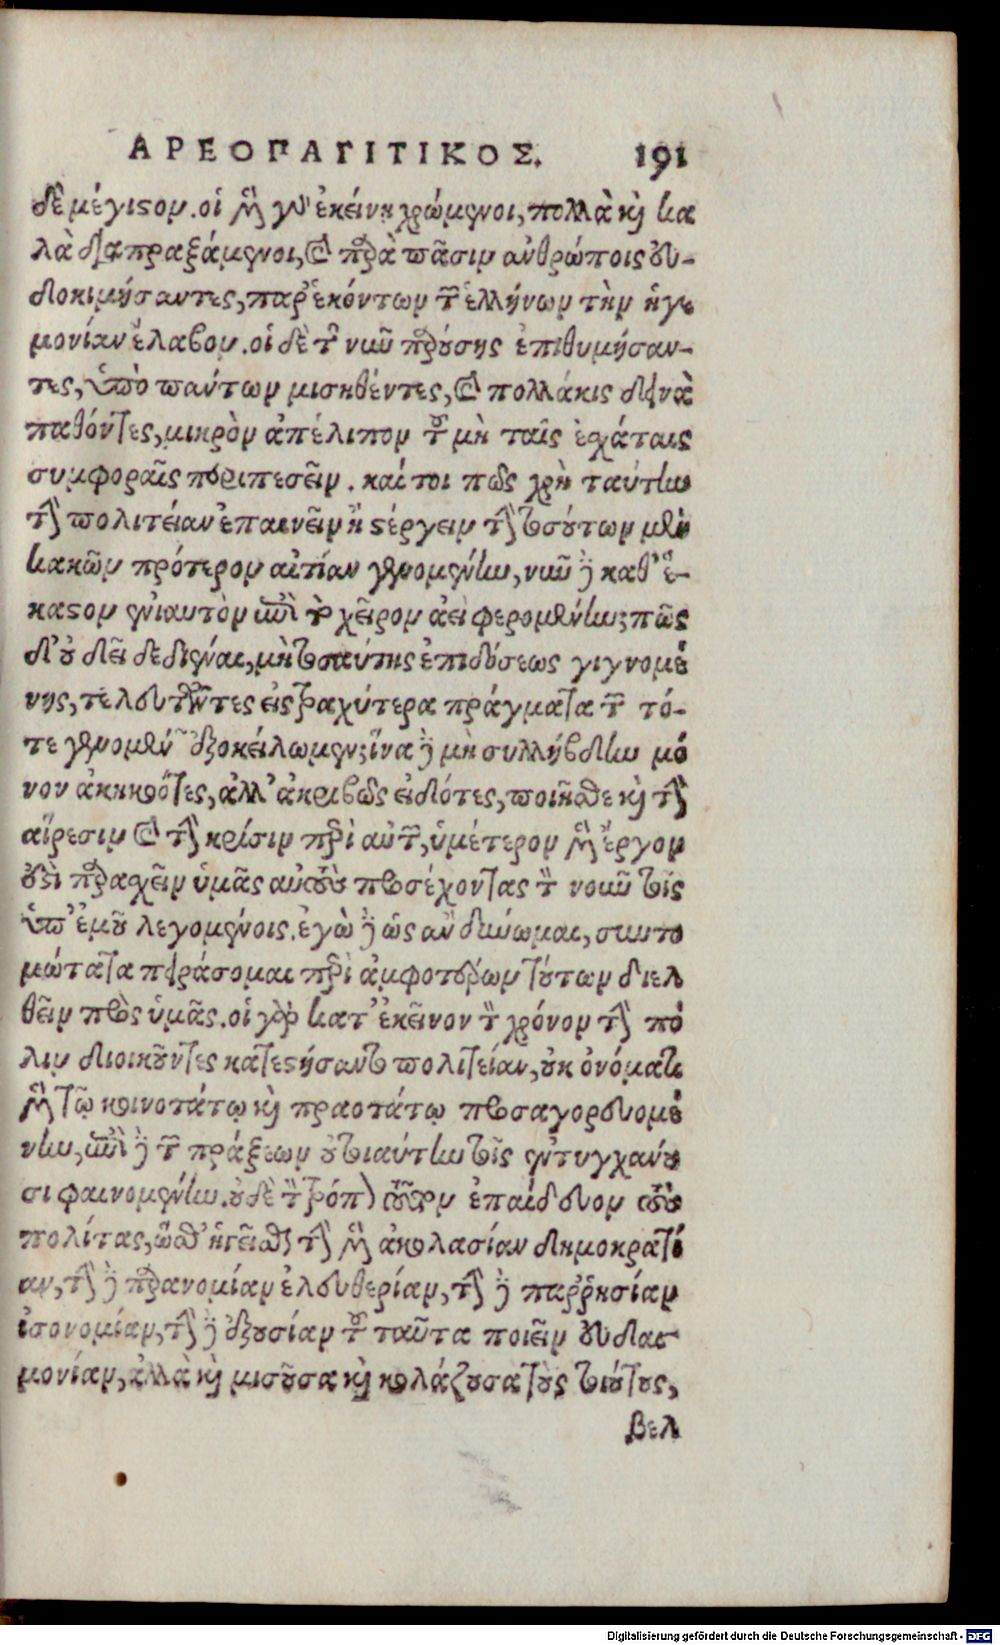 ΑΡΕΟΠΑΓΙΤΙΚΟΣ. 191
δὲ μέγιστον. οἱ μὲν γὰρ ἐκείνῃ χρώμενοι, πολλὰ καὶ κα
λὰ διαπραξάμενοι, καὶ παρὰ πᾶσιν ἀνθρώποις εὐ-
δοκιμήσαντες, παρ' ἑκόντων τῶν ἑλλήνων τὴν ἡγε
μονίαν ἔλαβον. οἱ δὲ τῆς νῦν παρούσης ἐπιθυμήσαν-
τες, ὑπὸ πάντων μισηθέντες, καὶ πολλάκις δεινὰ
παθόντες, μικρὸν ἀπέλιπον τοῦ μὴ ταῖς ἐσχάταις
συμφοραῖς περιπεσεῖν. καί τοι πῶς χρὴ ταύτην
τὴν πολιτείαν ἐπαινεῖν ἢ στέργειν τὴν τοσούτων μὲν
κακῶν πρότερον αἰτίαν γενομένην, νῦν δὲ καθ' ἕ-
καστον ἐνιαυτὸν ἐπὶ τὸ χεῖρον ἀεὶ φερομένην; πῶς
δ' οὐ δεῖ δεδιέναι, μὴ τοσαύτης ἐπιδόσεως γιγνομέ
νης, τελευτῶντες εἰς τραχύτερα πράγματα τῶν τό-
τε γενομένων ἐξοκείλωμεν; ἵνα δὲ μὴ συλλήβδην μό
νον ἀκηκοότες, ἀλλ' ἀκριβῶς εἰδότες, ποιῆσθε καὶ τὴν
αἵρεσιν καὶ τὴν κρίσιν περὶ αὐτῶν, ὑμέτερον μὲν ἔργον
ἐστὶ παρασχεῖν ὑμᾶς αὐτοὺς προσέχοντας τὸν νοῦν τοῖς
ὑπ' ἐμοῦ λεγομένοις. ἐγὼ δὲ ὡς ἂν δύνωμαι, συντο
μώτατα πειράσομαι περὶ ἀμφοτέρων τούτων διελ
θεῖν πρὸς ὑμᾶς. οἱ γὰρ κατ' ἐκεῖνον τὸν χρόνον τὴν πό
λιν διοικοῦντες κατεστήσαντο πολιτείαν, οὐκ ὀνόματι
μὲν τῷ κοινοτάτῳ καὶ πραοτάτῳ προσαγορευομέ
νην, ἐπὶ δὲ τῶν πράξεων οὐ τοιαύτην τοῖς ἐντυγχάνου
σι φαινομένην. οὐδὲ τὸν τρόπον τοῦτον ἐπαίδευον τοὺς
πολίτας, ὥσθ' ἡγεῖσθαι τὴν μὲν ἀκολασίαν δημοκρατί
αν, τὴν δὲ παρανομίαν ἐλευθερίαν, τὴν δὲ παῤῥησίαν
ἰσονομίαν, τὴν δὲ ἐξουσίαν τοῦ ταῦτα ποιεῖν εὐδαι-
μονίαν, ἀλλὰ καὶ μισοῦσα καὶ κολάζουσα τοὺς τοιούτους,
βελ
Digitalisierung gefördert durch die Deutsche Forschungsgemeinschaft - DFG